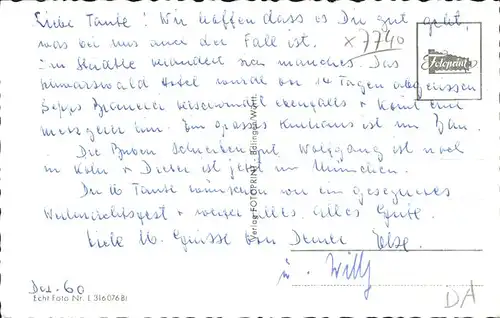 Liebe Tante! Wir hoffen dass es Dir gut geht,
was bei uns auch der Fall ist. x 7740
Fotoprint
im Städtle verändert sich manches. Das
Schwarzwald Hotel wurde vor 14 Tagen abgerissen
ebenfalls + kommt eine
Metzgerei hin. Ein grosses ist im Bau.
Die Buben schreiben gut. Wolfgang ist noch
in Köln + Dieter ist jetzt in München.
Dir lb Tante wünschen wir ein gesegnetes
Weihnachtsfest + weiter alles, alles Gute.
Viele lb. Grüsse von Deiner Else.
u. Willy
Verlag FOTOPRINT Balingen/Württ.
Dez. 60
Echt Foto Nr. L 316076 Bl
DA